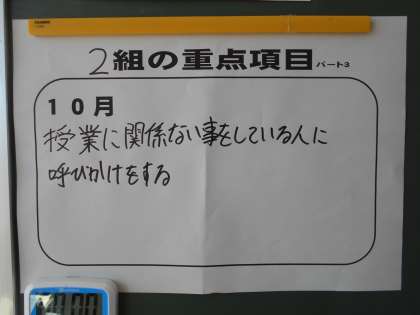 2組の重点項目パート3
10月
授業に関係ない事をしている人に
呼びかけをする